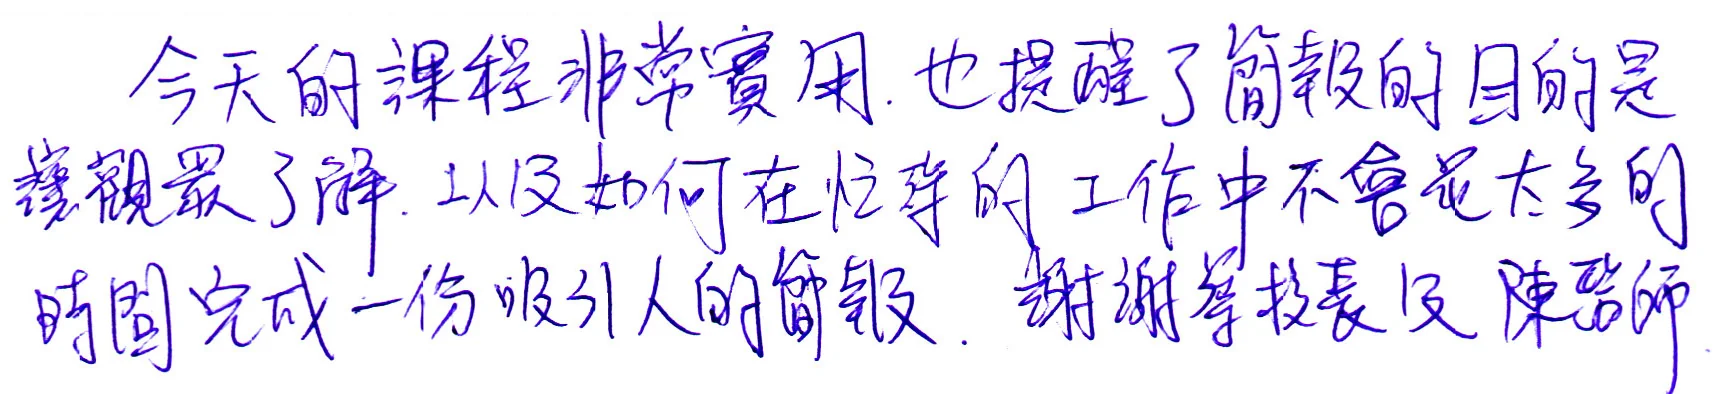 今天的課程非常實用.也提醒了簡報的目的是
讓觀眾了解.以及如何在忙碌的工作中不會花太多的
時間完成一份吸引人的簡報.謝謝校長及陳醫師